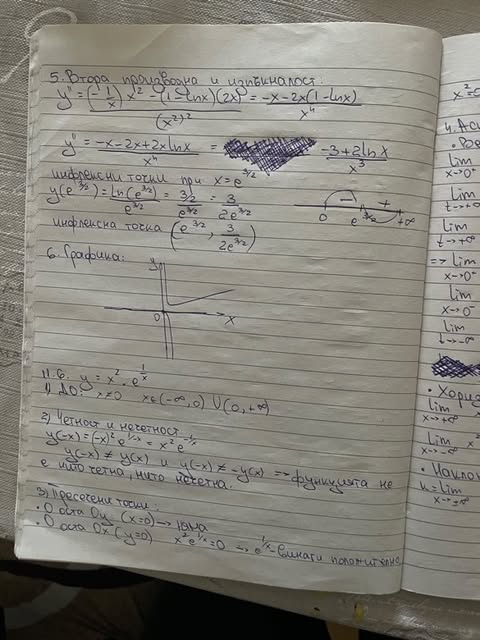 5. Втора производна и изпъкналост:
y'' = ((-1/x) x² - (1-lnx)(2x))/(x²)² = (-x-2x(1-lnx))/x⁴
y'' = (-x-2x+2xlnx)/x⁴ = (-3+2lnx)/x³
инфлексни точки при x=e^(3/2)
y(e^(3/2)) = ln(e^(3/2))/e^(3/2) = (3/2)/e^(3/2) = 3/(2e^(3/2))
- +
0 e^(3/2) +∞
инфлексна точка (e^(3/2), 3/(2e^(3/2)))
6. Графика:
y
0 x
11.б. y = x² . e^(1/x)
1) ДО: x≠0 x∈(-∞,0) ∪(0,+∞)
2) Четност и нечетност
y(-x)=(-x)² e^(1/-x) = x² e^(-1/x)
y(-x) ≠ y(x) и y(-x) ≠ -y(x) => функцията не
е нито четна, нито нечетна.
3) Пресечени точки:
· О оста Oy (x=0) → няма
· О оста Ox (y=0) x² e^(1/x) = 0 → e^(1/x) - винаги положително
x²=0
4. Ас
· Ве
lim
x→0⁺
lim
t→+∞
lim
t→+∞
=> lim
x→0⁻
lim
x→0⁻
lim
t→-∞
· Хориз
lim
x→+∞
lim x²
x→-∞
· Наклон
k=lim
x→±∞